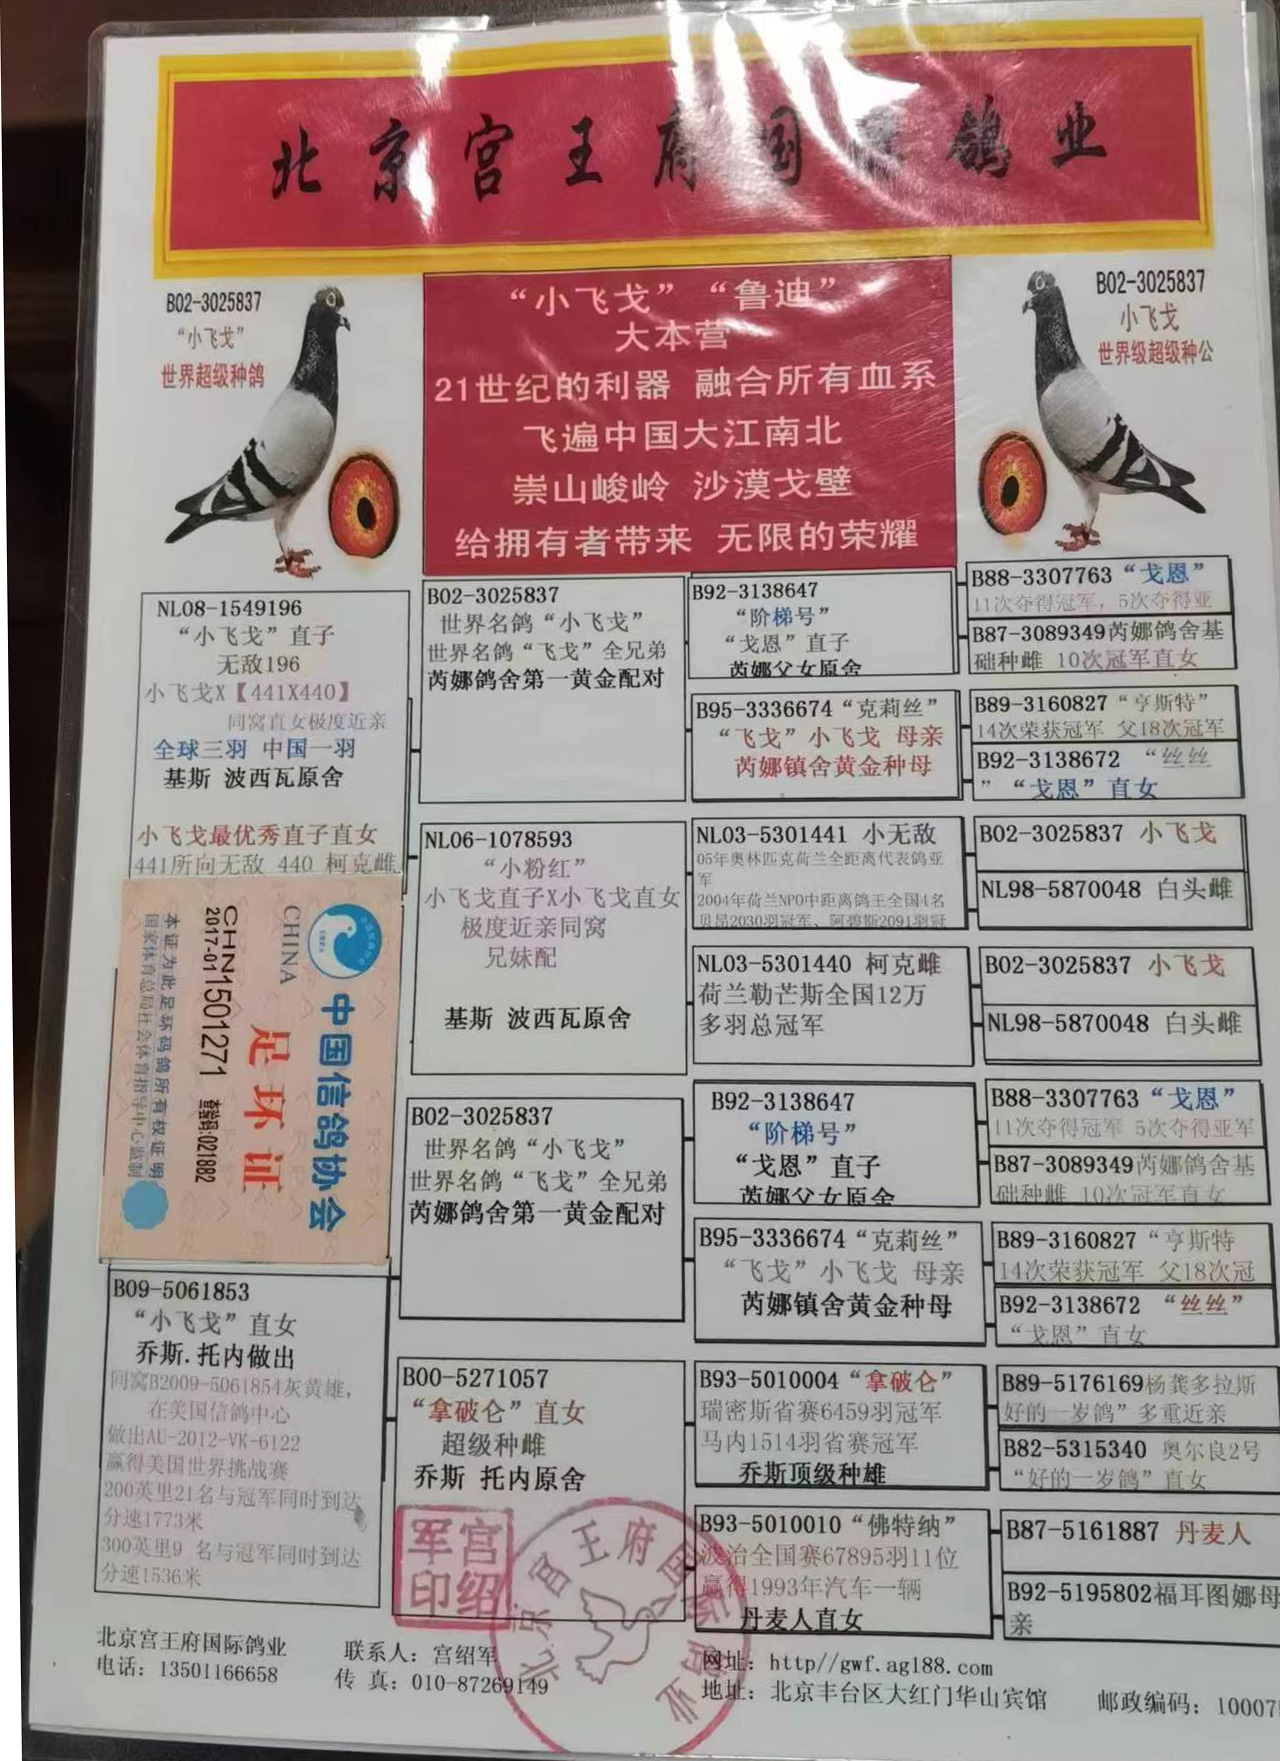 北京宫王府国际鸽业
B02-3025837
“小飞戈”
世界超级种鸽
“小飞戈”“鲁迪”
大本营
21世纪的利器 融合所有血系
飞遍中国大江南北
崇山峻岭 沙漠戈壁
给拥有者带来 无限的荣耀
B02-3025837
小飞戈
世界级超级种公
NL08-1549196
“小飞戈”直子
无敌196
小飞戈X【441X440】
同窝直女极度近亲
全球三羽 中国一羽
基斯 波西瓦原舍
小飞戈最优秀直子直女
441所向无敌 440 柯克雌
中国信鸽协会
CHINA
足环证
CHN
2017-01 1501271 查验码:021882
本证为此足环码鸽所有权证明
国家体育总局社会体育指导中心监制
B09-5061853
“小飞戈”直女
乔斯.托内做出
同窝B2009-5061854灰黄雄，
在美国信鸽中心
做出AU-2012-VK-6122
赢得美国世界挑战赛
200英里21名与冠军同时到达
分速1773米
300英里9 名与冠军同时到达
分速1536米
B02-3025837
世界名鸽“小飞戈”
世界名鸽“飞戈”全兄弟
芮娜鸽舍第一黄金配对
NL06-1078593
“小粉红”
小飞戈直子X小飞戈直女
极度近亲同窝
兄妹配
基斯 波西瓦原舍
B02-3025837
世界名鸽“小飞戈”
世界名鸽“飞戈”全兄弟
芮娜鸽舍第一黄金配对
B00-5271057
“拿破仑”直女
超级种雌
乔斯 托内原舍
B92-3138647
“阶梯号”
“戈恩”直子
芮娜父女原舍
B95-3336674“克莉丝”
“飞戈”小飞戈 母亲
芮娜镇舍黄金种母
NL03-5301441 小无敌
05年奥林匹克荷兰全距离代表鸽亚
军
2004年荷兰NPO中距离鸽王全国4名
贝昂2030羽冠军、阿碧斯2091羽冠
NL03-5301440 柯克雌
荷兰勒芒斯全国12万
多羽总冠军
B92-3138647
“阶梯号”
“戈恩”直子
芮娜父女原舍
B95-3336674“克莉丝”
“飞戈”小飞戈 母亲
芮娜镇舍黄金种母
B93-5010004“拿破仑”
瑞密斯省赛6459羽冠军
马内1514羽省赛冠军
乔斯顶级种雄
B93-5010010“佛特纳”
波治全国赛67895羽11位
赢得1993年汽车一辆
丹麦人直女
B88-3307763“戈恩”
11次夺得冠军，5次夺得亚
B87-3089349芮娜鸽舍基
础种雌 10次冠军直女
B89-3160827“亨斯特”
14次荣获冠军 父18次冠军
B92-3138672 “丝丝
”“戈恩”直女
B02-3025837 小飞戈
NL98-5870048 白头雌
B02-3025837 小飞戈
NL98-5870048 白头雌
B88-3307763“戈恩”
11次夺得冠军 5次夺得亚军
B87-3089349芮娜鸽舍基
础种雌 10次冠军直女
B89-3160827“亨斯特
14次荣获冠军 父18次冠
B92-3138672 “丝丝”
“戈恩”直女
B89-5176169杨龚多拉斯
好的一岁鸽”多重近亲
B82-5315340 奥尔良2号
“好的一岁鸽”直女
B87-5161887 丹麦人
B92-5195802福耳图娜母
亲
军宫
印绍
北京宫王府国际鸽业
北京宫王府国际鸽业 联系人：宫绍军
电话：13501166658 传 真：010-87269149
网址：http//gwf.ag188.com
地址：北京丰台区大红门华山宾馆 邮政编码：10007